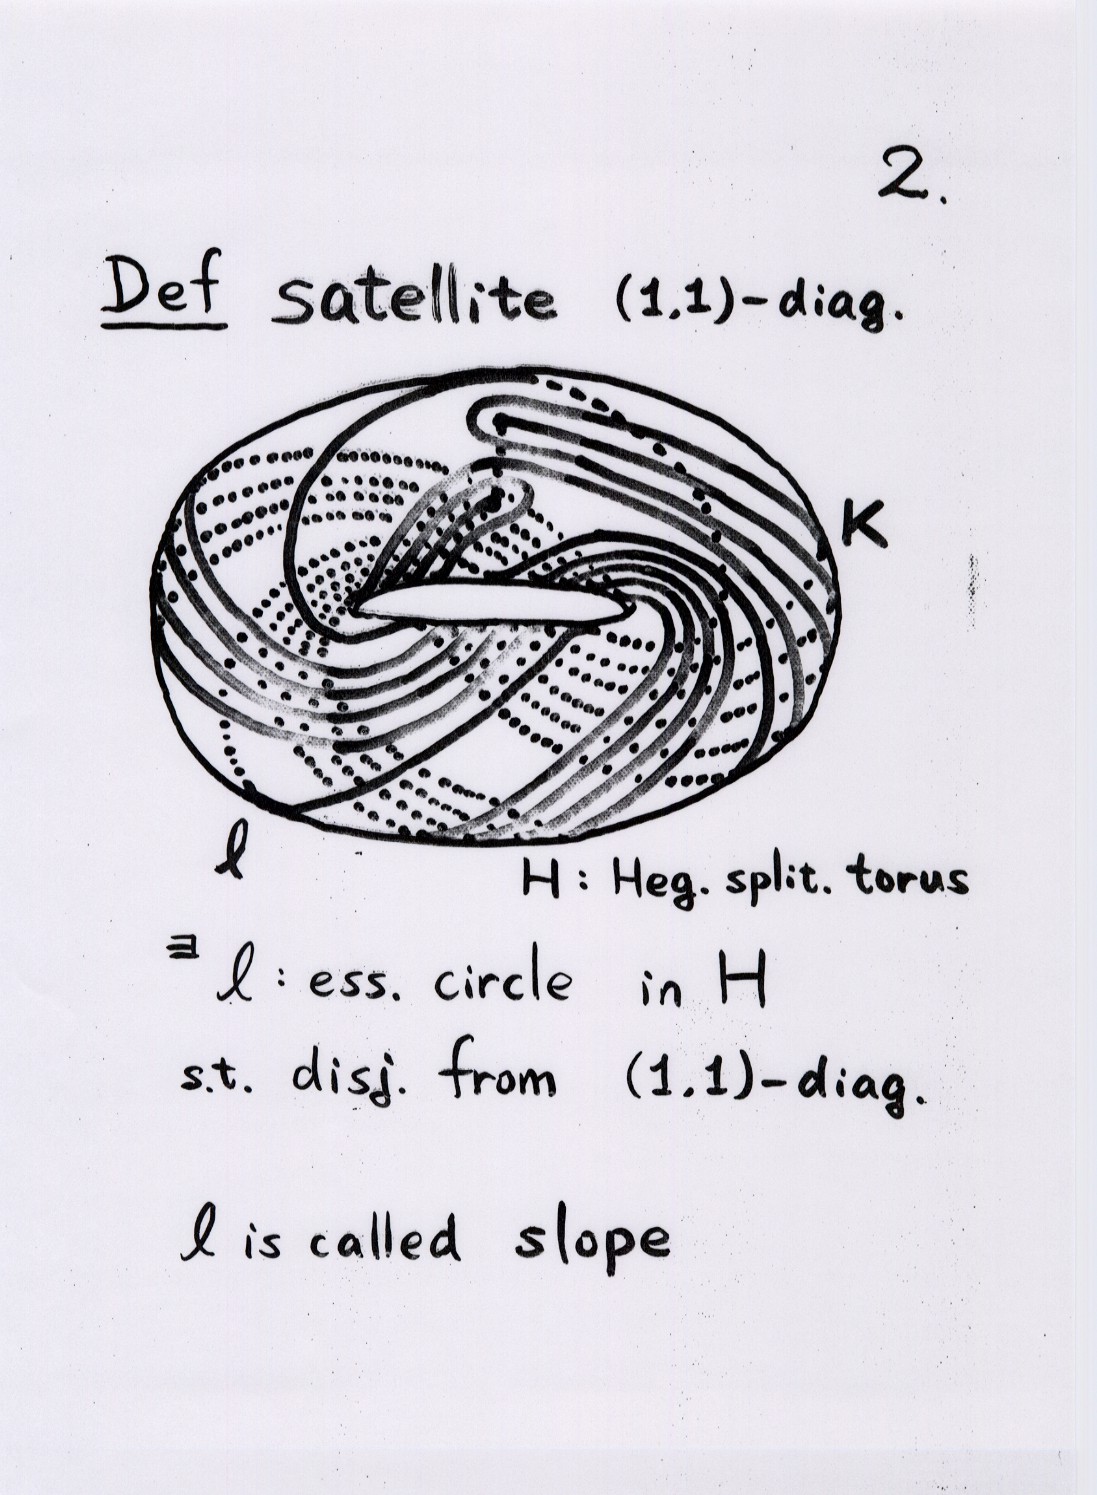 2.
Def satellite (1,1)-diag.
K
l
H : Heg. split. torus
∃ l : ess. circle in H
s.t. disj. from (1,1)-diag.
l is called slope